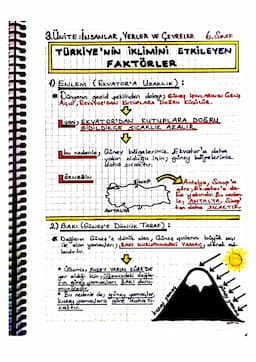 3.ÜNİTE: İNSANLAR, YERLER VE ÇEVRELER 6.SINIF
TÜRKİYE'NİN İKLİMİNİ ETKİLEYEN
FAKTÖRLER
1) ENLEM (EKVATOR'A UZAKLIK) :
Dünyanın geoid şeklinden dolayı; GÜNEŞ IŞINLARININ GELİŞ
AÇISI, EKVATOR'DAN KUTUPLARA DOĞRU KÜÇÜLÜR.
EKVATOR'DAN KUTUPLARA DOĞRU
GİDİLDİKÇE SICAKLIK AZALIR.
Bu nedenle; Güney bölgelerimiz Ekvator'a daha
yakın olduğu için; güney bölgelerimiz
daha sıcaktır.
ÖRNEĞİN
Antalya, Sinop'a
göre, Ekvator'a da-
ha yakındır. Bu neden-
le; ANTALYA, Sinop'-
tan daha SICAKTIR.
ANTALYA
2) BAKI (GÜNEŞ'E DÖNÜK TARAF) :
Dağların Güneş'e dönük olan, Güneş ışığını
ile alan yamaçları; BAKI DURUMUNDAKİ YAMAÇ, olarak ad-
landırılır.
Ülkemiz KUZEY YARIM KÜRE'DE
yer aldığı için; ülkemizdeki dağların
güney yamaçları BAKI duru-
mundadır.
Bu nedenle de; güney yamaçlar,
kuzey yamaçlara göre daha